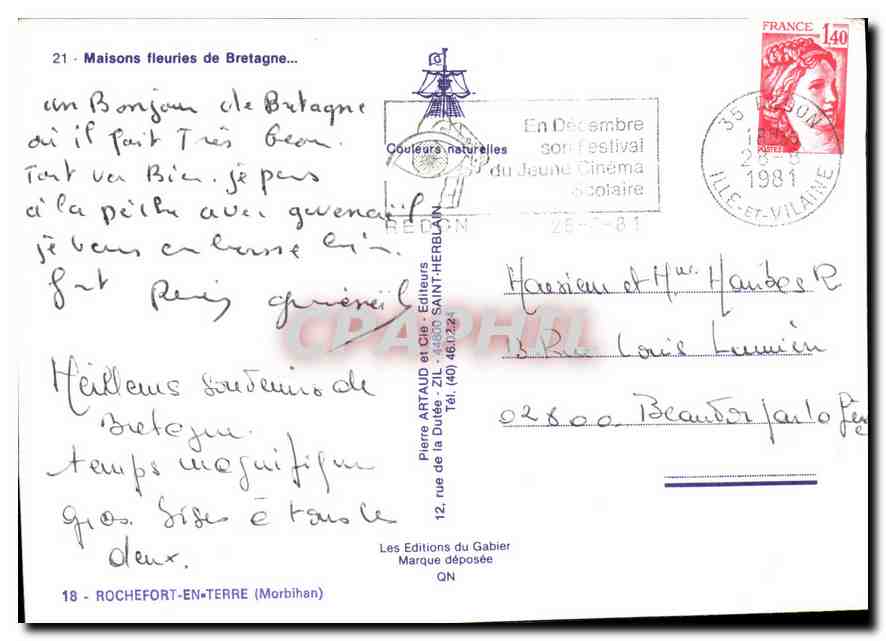 21 - Maisons fleuries de Bretagne...
un Bonjour de Bretagne
où il fait Très beau.
Tout va Bien. je pars
à la pêche avec gwenaël
je vous embrasse bien
fort
Meilleurs souvenirs de
Bretagne.
temps magnifique
gros Bises à tous les
deux.
18 - ROCHEFORT-EN-TERRE (Morbihan)
Couleurs naturelles
Pierre ARTAUD et Cie - Editeurs
12, rue de la Dutée - ZIL - 44800 SAINT-HERBLAIN
Tél. (40) 46.02.24
Les Editions du Gabier
Marque déposée
QN
En Décembre
son Festival
du Jeune Cinéma
Scolaire
REDON
FRANCE
1,40
POSTES
35 REDON
1981
ILLE-ET-VILAINE
Monsieur et Mme R
13 Rue Louis Lumière
02800 Beautor par la Fère
CPAPHIL